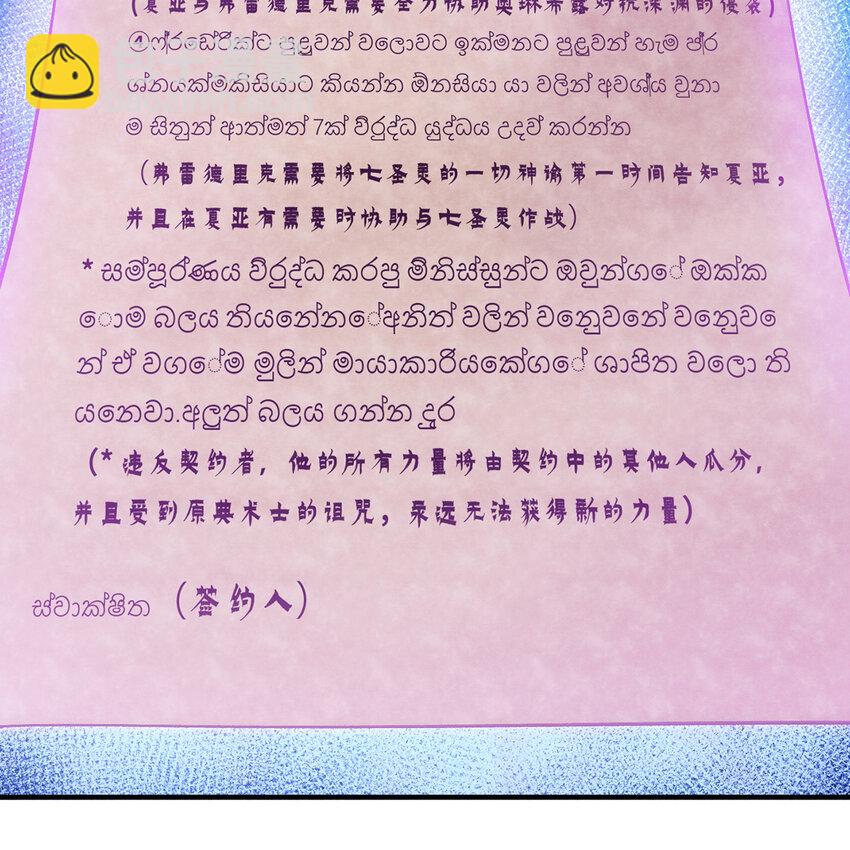 (夏亚与弗雷德里克需要全力协助奥琳希露对抗深渊的侵袭)
④ෆ්රඩේරික්ට පුළුවන් වලොවට ඉක්මනට පුළුවන් හැම ප්ර
ශ්නයක්ම්කිසියාට කියන්න ඕනසියා යා වලින් අවශ්ය වුනා
ම සිතුන් ආත්මත් 7ක් විරුද්ධ යුද්ධය උදව් කරන්න
(弗雷德里克需要将七圣灵的一切神谕第一时间告知夏亚，
并且在夏亚有需要时协助与七圣灵作战)
* සම්පූර්ණය විරුද්ධ කරපු මිනිස්සුන්ට ඔවුන්ගේ ඔක්ක
ොම බලය තියනේනේඅනිත් වලින් වනුෙවනේ වනුෙවෙ
න් ඒ වගේම මුලින් මායාකාරියකේගේ ශාපිත වලො ති
යනෙවා.අලුත් බලය ගන්න දුර
(* 违反契约者，他的所有力量将由契约中的其他人瓜分，
并且受到原典术士的诅咒，永远无法获得新的力量)
ස්වාක්ෂිත (签约人)